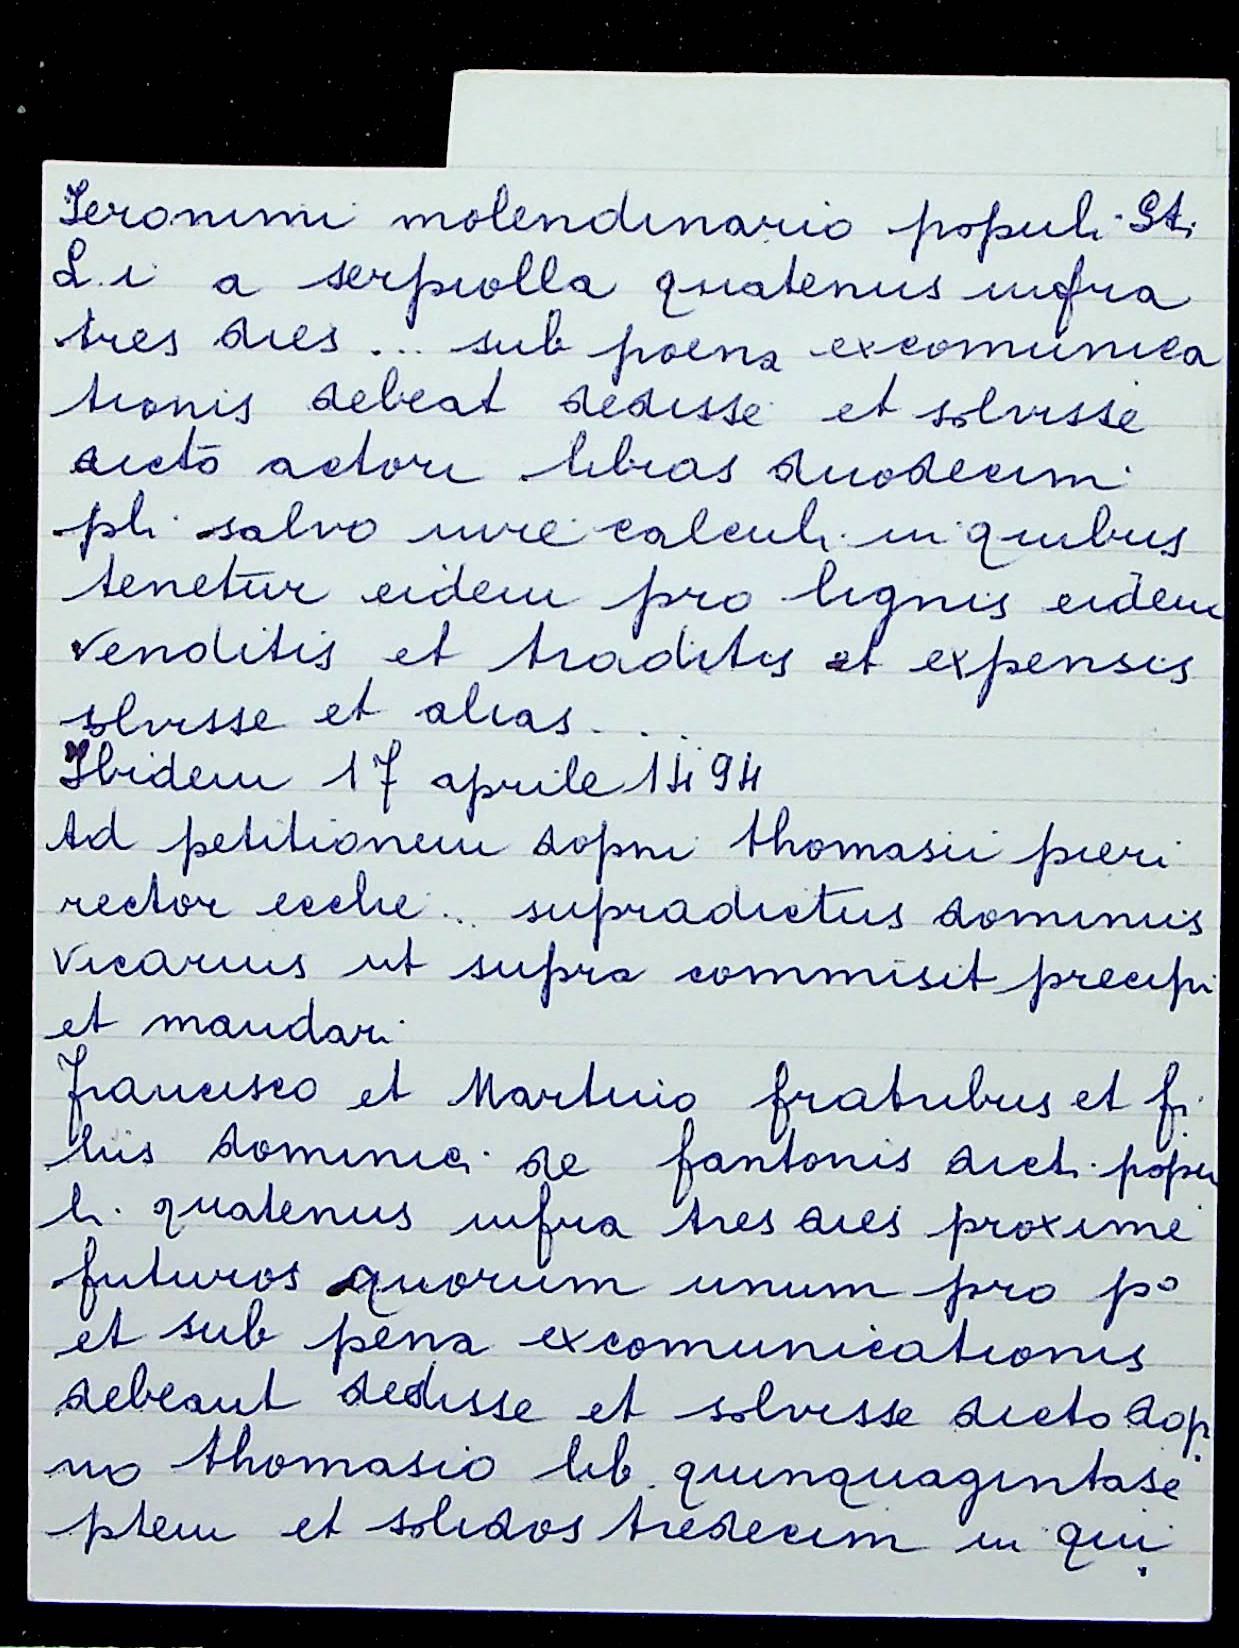 Ieronimi molendinario populi Sti
L.i a serpiolla quatenus infra
tres dies ... sub poena excomunica
tionis debeat dedisse et solvisse
dicto actori libras duodecim
pli salvo iure calculi in quibus
tenetur eidem pro lignis eidem
venditis et traditis et expensis
solvisse et alias ...
Ibidem 17 aprile 1494
Ad petitionem dopni thomasii pieri
rector ecclie .. supradictus dominus
vicarius ut supra commisit precipi
et mandari
Francisco et Martino fratribus et fi
liis dominici de fantonis dicti popu
li quatenus infra tres dies proxime
futuros quorum unum pro po
et sub pena excomunicationis
debeant dedisse et solvisse dicto dop
no thomasio lib. quinquagintase
ptem et solidos tredecim in qui